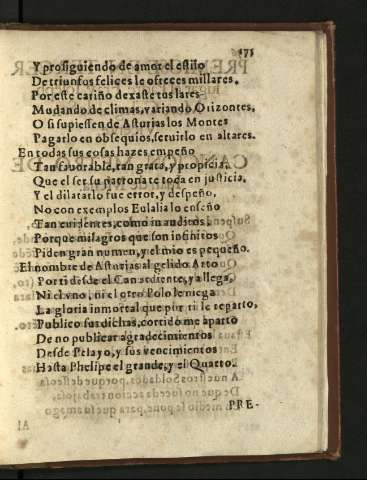 175
Y prosiguiendo de amor el estilo
De triunfos felices le ofreces millares.
Por este cariño dexaste tus lares
Mudando de climas, variando Orizontes.
O si supiessen de Asturias los Montes
Pagarlo en obsequios, seruirlo en altares.
En todas sus cosas hazes empeño
Tan fauorable, tan grata, y propicia,
Que el ser su patrona te toca en justicia,
Y el dilatarlo fue error, y despeño,
No con exemplos Eulalia lo enseño
Tan euidentes, como inauditos,
Porque milagros que son infinitos
Piden gran numen, y el mio es pequeño.
El nombre de Asturias al gelido Arto
Por ti desde el Can ardiente, ya llega,
Ni el vno, ni el otro Polo le niega
La gloria inmortal que por ti le reparto,
Publico sus dichas, corrido me aparto
De no publicar agradecimientos
Desde Pelayo, y sus vencimientos
Hasta Phelipe el grande, y el Quarto.
PRE-